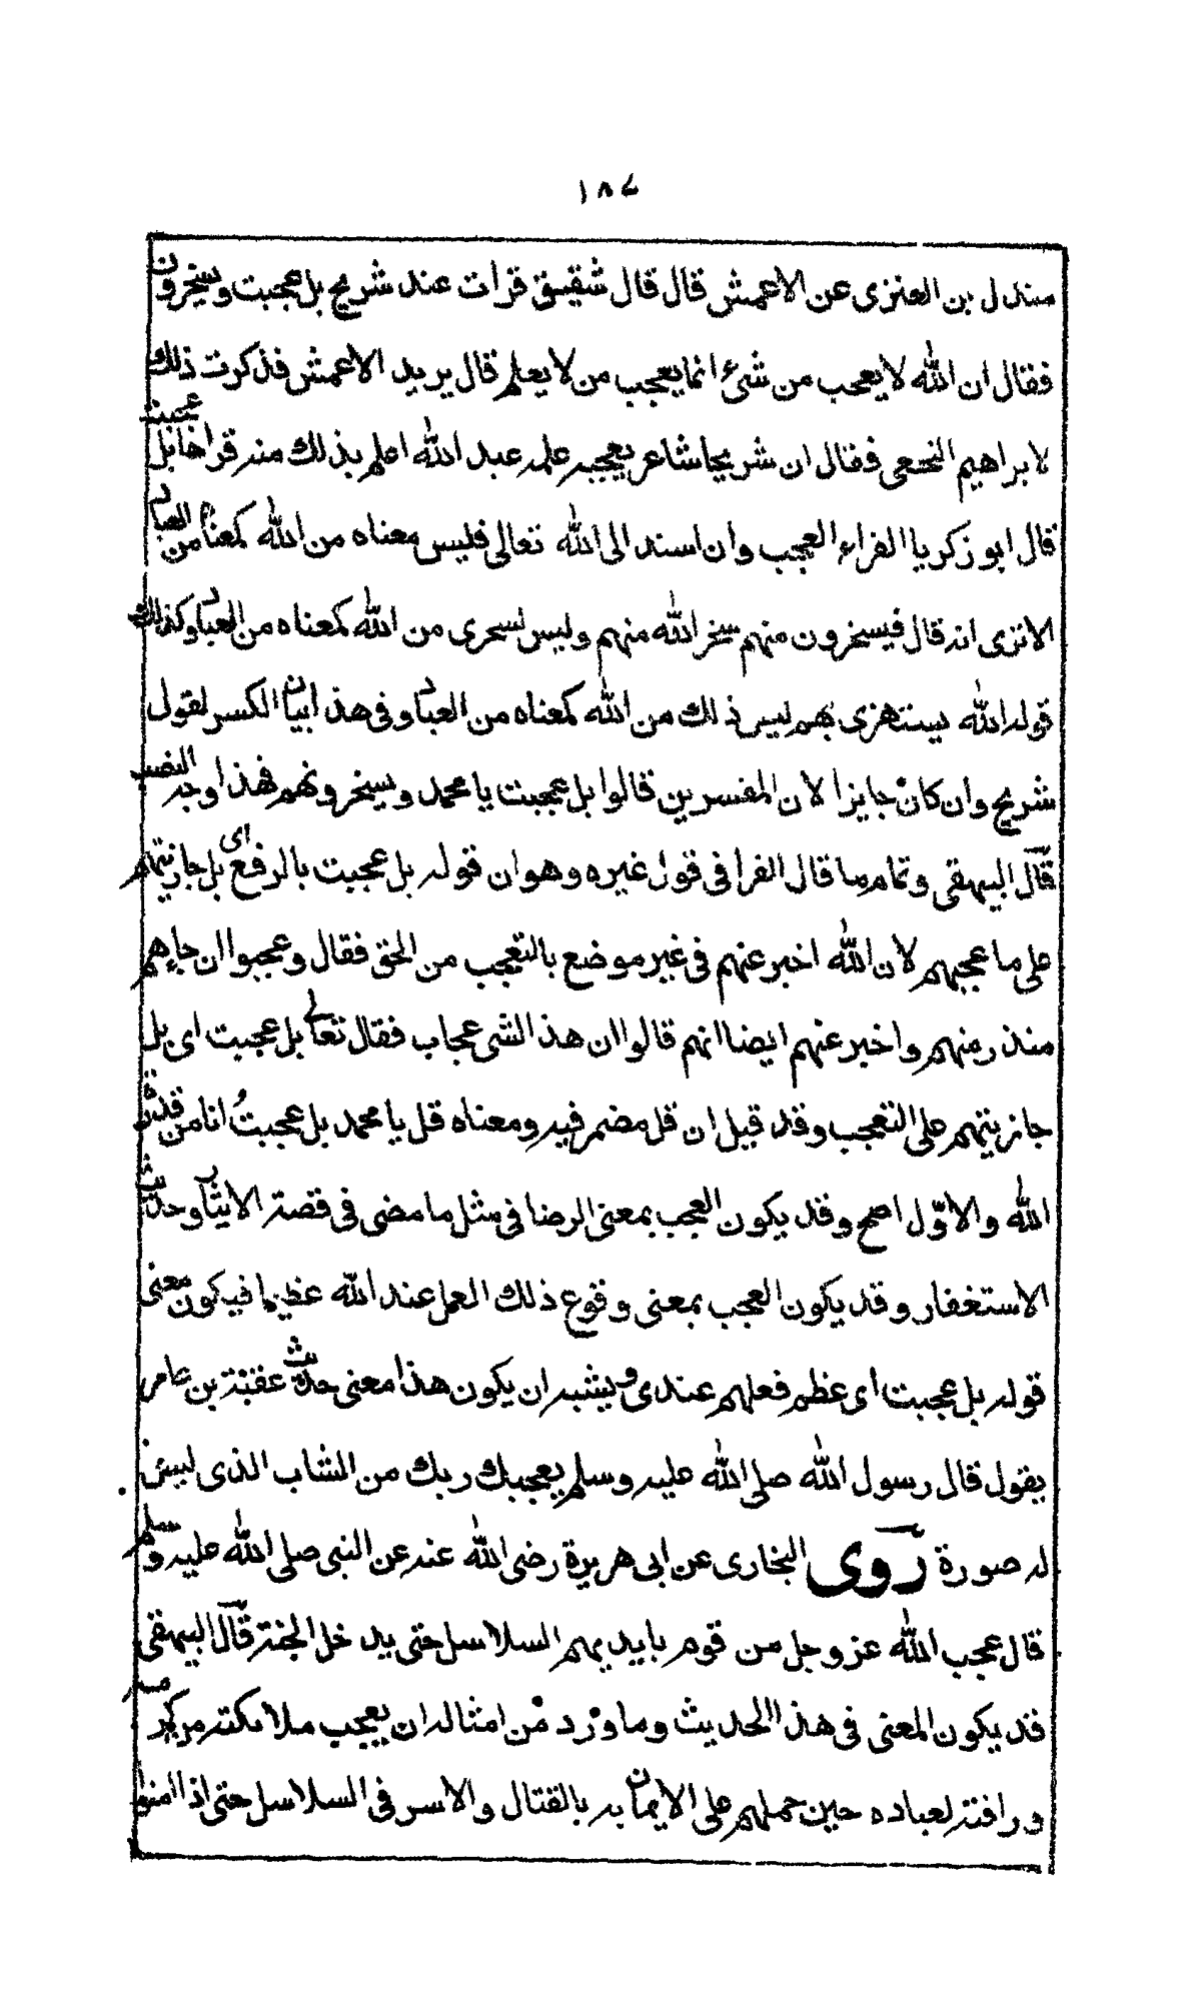 ١٨٤
مندل بن العنزى عن الاعمش قال قال شقيق قرات عند شريح بل عجبت ويسخرون
فقال ان الله لا يعجب من شئ انما يعجب من لا يعلم قال يريد الاعمش فذكرت ذلك
لابراهيم النخعى فقال ان شريحا شاعر يعجبه علمه عبد الله اعلم بذلك منه قراها بل عجبت
قال ابو زكريا الفراء العجب وان اسند الى الله تعالى فليس معناه من الله كمعناه من العباد
الا ترى انه قال فيسخرون منهم سخر الله منهم وليس لسخرى من الله كمعناه من العباد وكذلك
قوله الله يستهزى بهم ليس ذلك من الله كمعناه من العباد وفى هذا بيان الكسر لقول
شريح وان كان جايزا لان المفسرين قالوا بل عجبت يا محمد ويسخرونهم فهذا وجه النصب
قال البيهقى وتمام ما قال الفرا فى قول غيره وهو ان قوله بل عجبت بالرفع اى بل جازيتهم
على ما عجبهم لان الله اخبر عنهم فى غير موضع بالتعجب من الحق فقال وعجبوا ان جاءهم
منذر منهم واخبر عنهم ايضا انهم قالوا ان هذا لشى عجاب فقال تعالى بل عجبت اى بل
جازيتهم على التعجب وقد قيل ان قل مضمر فيه ومعناه قل يا محمد بل عجبتُ انا من قدرة
الله والاوّل اصح وقد يكون العجب بمعنى الرضا فى مثل ما مضى فى قصة الايثار وحديث
الاستغفار وقد يكون العجب بمعنى وقوع ذلك العمل عند الله عظيما فيكون معنى
قوله بل عجبت اى عظم فعلهم عندى ويشبه ان يكون هذا معنى حديث عقبة بن عامر
يقول قال رسول الله صلى الله عليه وسلم يعجبك ربك من الشاب الذى ليس
له صورة روى البخارى عن ابى هريرة رضى الله عنه عن النبى صلى الله عليه وسلم
قال عجب الله عز وجل من قوم بايديهم السلاسل حتى يدخل الجنة قال البيهقى
قد يكون المعنى فى هذا الحديث وما ورد من امثاله ان يعجب ملائكته من كرمه
ورافته لعباده حين حملهم على الايمان به بالقتال والاسر فى السلاسل حتى اذا امنوا